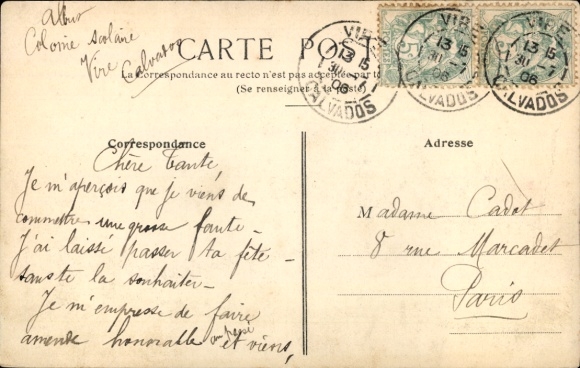 Albur
Colonie scolaire
Vire Calvados
CARTE POS
La Correspondance au recto n'est pas acceptée par to
(Se renseigner à la poste)
VIRE
13 15
1 06
CALVADOS
VIRE
13 15
06
CALVADOS
VIRE
13 15
06
CALVADOS
5
Correspondance
Chère Tante
Je m'aperçois que je viens de
commettre une grosse faute -
J'ai laissé passer ta fête -
sans te la souhaiter -
Je m'empresse de faire
amende honorable et viens,
Adresse
Madame Cadot
8 rue Marcadet
Paris